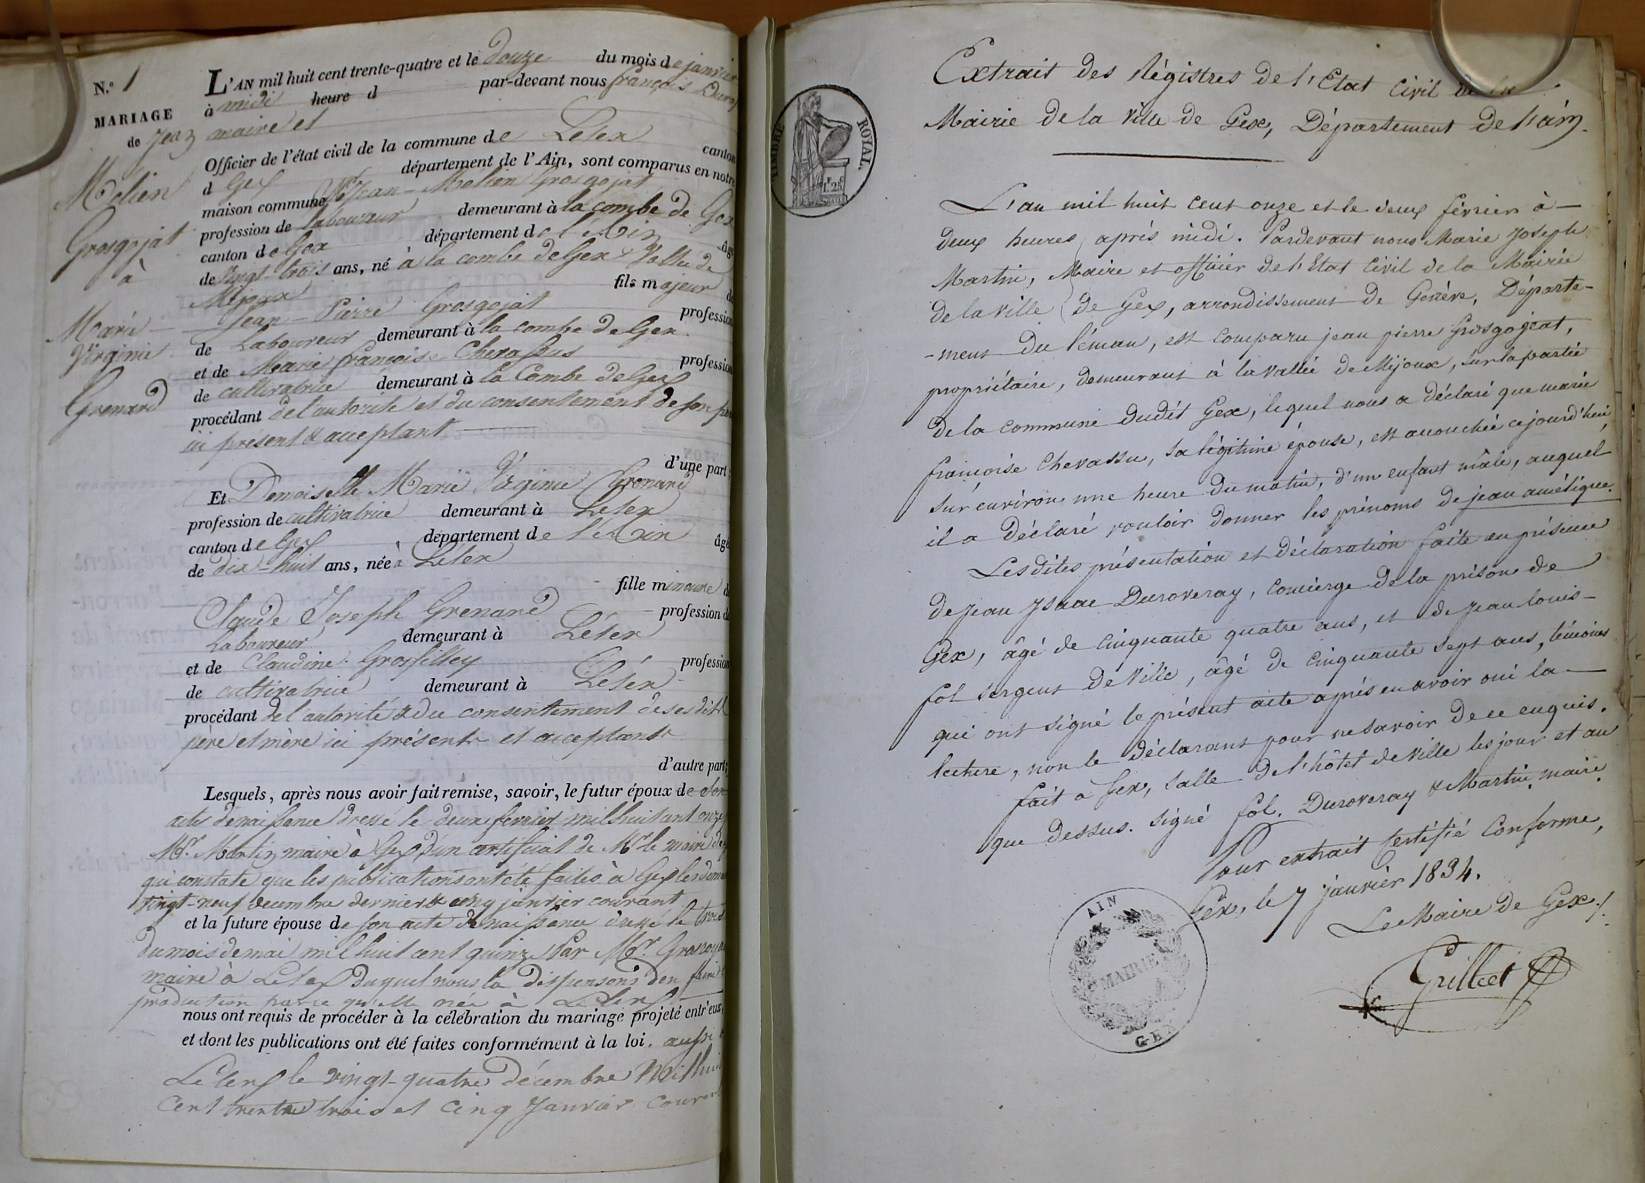 N.º 1
MARIAGE
de Jean
Molien
Grosgojat
à
Marie
Virginie
Grenard
L'AN mil huit cent trente-quatre et le douze du mois de janvier
à midi heure d par-devant nous françois
maire et
Officier de l'état civil de la commune de Lélex canton
d Gex département de l'Ain, sont comparus en notre
maison commune Jean-Molien Grosgojat
profession de laboureur demeurant à la combe de Gex
canton de Gex département de l'Ain âgé
de vingt-trois ans, né à la combe de Gex Vallée de
Mijoux fils majeur de
Jean-Pierre Grosgojat profession
de Laboureur demeurant à la combe de Gex
et de Marie françoise Chevassus profession
de cultivatrice demeurant à la Combe de Gex
procédant de l'autorité et du consentement de son père
ici présent & acceptant
d'une part;
Et Demoiselle Marie Virginie Grenard
profession de cultivatrice demeurant à Lélex
canton de Gex département de l'Ain âgé
de dix-huit ans, née à Lélex
fille mineure d
Claude Joseph Grenard profession de
Laboureur demeurant à Lélex
et de Claudine Grosfilley profession
de cultivatrice demeurant à Lélex
procédant de l'autorité & du consentement de ses dits
père et mère ici présents et acceptants
d'autre part;
Lesquels, après nous avoir fait remise, savoir, le futur époux de son
acte de naissance dressé le deux février mil huit cent onze
Mr. Martin maire à Gex, d'un certificat de Mr. le maire de
qui constate que les publications ont été faites à Gex les
vingt-neuf décembre dernier & cinq janvier courant
et la future épouse de son acte de naissance dressé le trois
du mois de mai mil huit cent quinze par Mr.
maire à Lélex duquel nous la dispensons d'en faire
production parce qu'elle née à Lélex
nous ont requis de procéder à la célébration du mariage projeté entr'eux
et dont les publications ont été faites conformément à la loi. aussi
Lélex le vingt-quatre décembre mil huit
cent trente trois et cinq Janvier courant
TIMBRE ROYAL
1f.25
Extrait des Régistres de l'Etat Civil de la
Mairie de la ville de Gex, Département de l'ain.
L'an mil huit cent onze et le deux février à
deux heures après midi. Pardevant nous Marie Joseph
Martin, Maire et officier de l'Etat Civil de la Mairie
de la ville de Gex, arrondissement de Genève, Départe-
-ment du Léman, est comparu jean pierre Grosgojeat,
propriétaire, demeurant à la vallée de Mijoux, sur la partie
de la commune dudit Gex, lequel nous a déclaré que marie
françoise Chevassu, sa légitime épouse, est accouchée cejourd'hui
sur environ une heure du matin, d'un enfant mâle, auquel
il a déclaré vouloir donner les prénoms de jean amélique.
Lesdites présentation et déclaration faite en présence
de Jean Isaac Duroveray, concierge de la prison de
Gex, âgé de cinquante quatre ans, et de jean louis-
fol sergent de ville, âgé de cinquante sept ans, témoins
qui ont signé le présent acte après en avoir oui la
lecture, non le déclarant pour ne savoir de ce enquis.
fait à Gex, salle de l'hôtel de ville les jour et an
que dessus. signé fol. Duroveray & Martin, maire.
Pour extrait Certifié Conforme,
Gex, le 7 janvier 1834.
Le Maire de Gex,
Grillet
AIN
MAIRIE
GEX